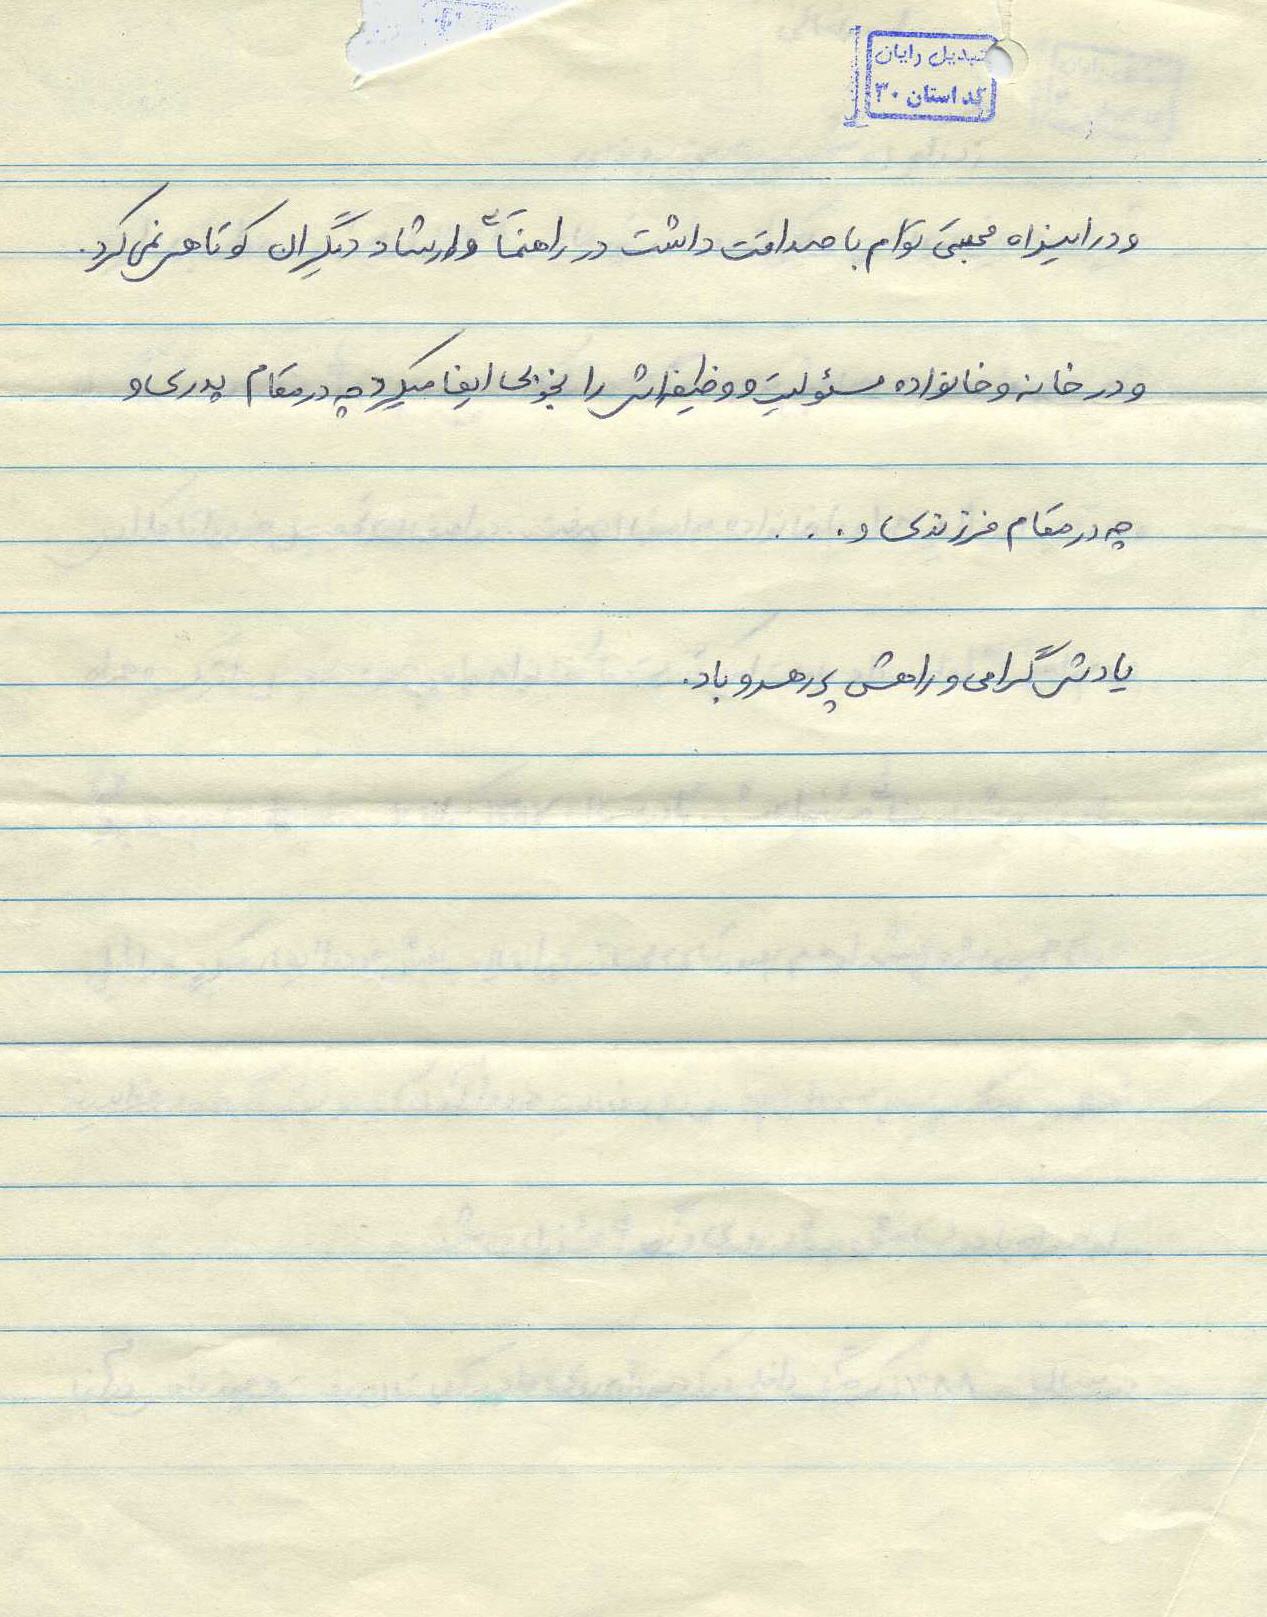 تبدیل رایان
کد استان ۳۰
و در این راه محبتی توأم با صداقت داشت در راهنمائی و ارشاد دیگران کوتاهی نمی کرد.
و در خانه و خانواده مسئولیت و وظیفه اش را بخوبی ایفا میکرد چه در مقام پدری و
چه در مقام فرزندی و . . .
یادش گرامی و راهش پر رهرو باد.